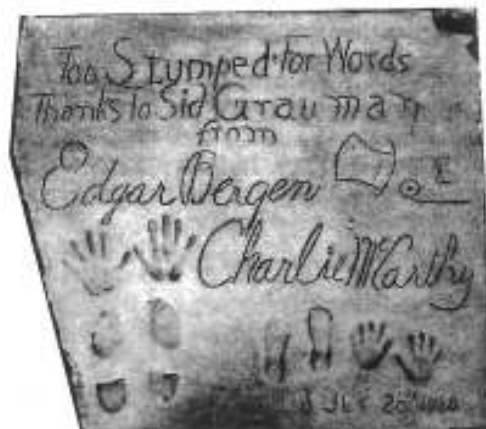 Too Stumped for Words
Thanks To Sid Grauman
from
Edgar Bergen
Charlie McCarthy
JLY 20